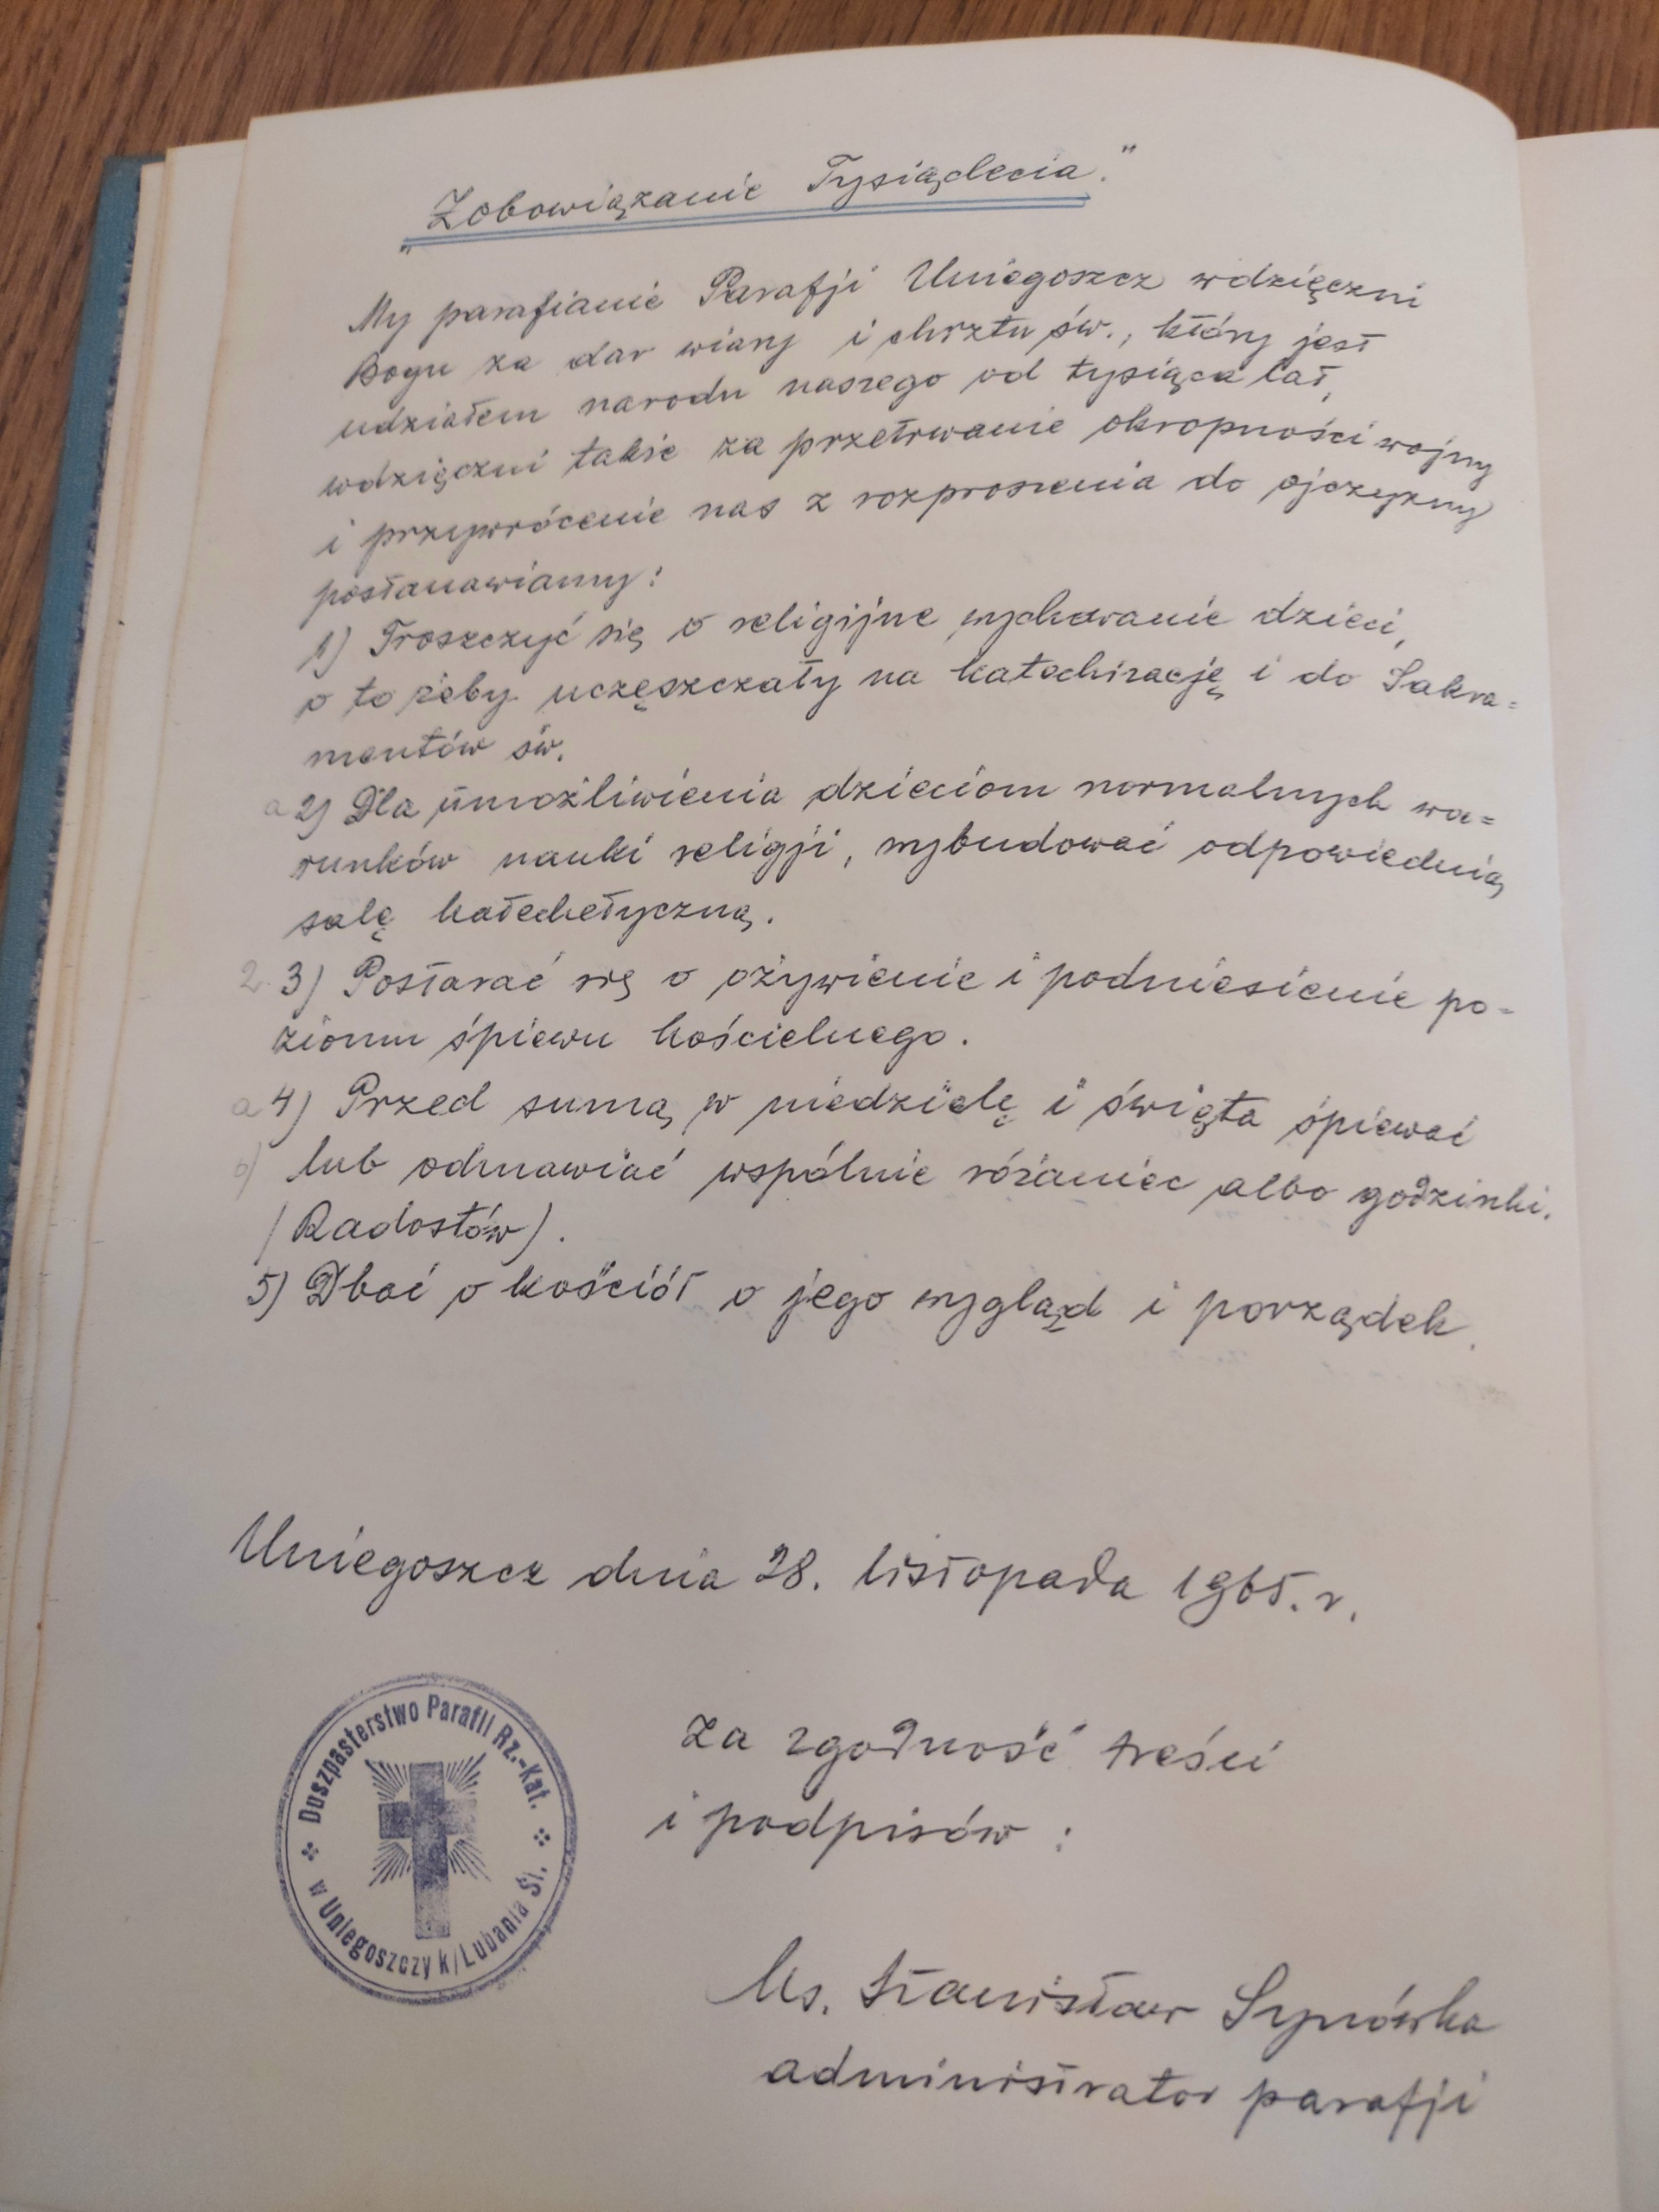 „Zobowiązanie Tysiąclecia."
My parafianie Parafji Uniegoszcz wdzięczni
Bogu za dar wiary i chrztu św., który jest
udziałem narodu naszego od tysiąca lat,
wdzięczni także za przetrwanie okropności wojny
i przywrócenie nas z rozproszenia do ojczyzny
postanawiamy:
1) Troszczyć się o religijne wychowanie dzieci,
o to żeby uczęszczały na katechizację i do Sakra=
mentów św.
a 2) Dla umożliwienia dzieciom normalnych wa=
runków nauki religji, wybudować odpowiednią
salę katechetyczną.
2. 3) Postarać się o ożywienie i podniesienie po=
ziomu śpiewu kościelnego.
a 4) Przed sumą w niedzielę i święta śpiewać
b) lub odmawiać wspólnie różaniec albo godzinki.
(Radostów).
5) Dbać o kościół o jego wygląd i porządek.
Uniegoszcz dnia 28. listopada 1965. r.
Za zgodność treści
i podpisów:
Duszpasterstwo Parafii Rz.-Kat.
w Uniegoszczy k/Lubania Śl.
Ks. Stanisław Synówka
administrator parafji